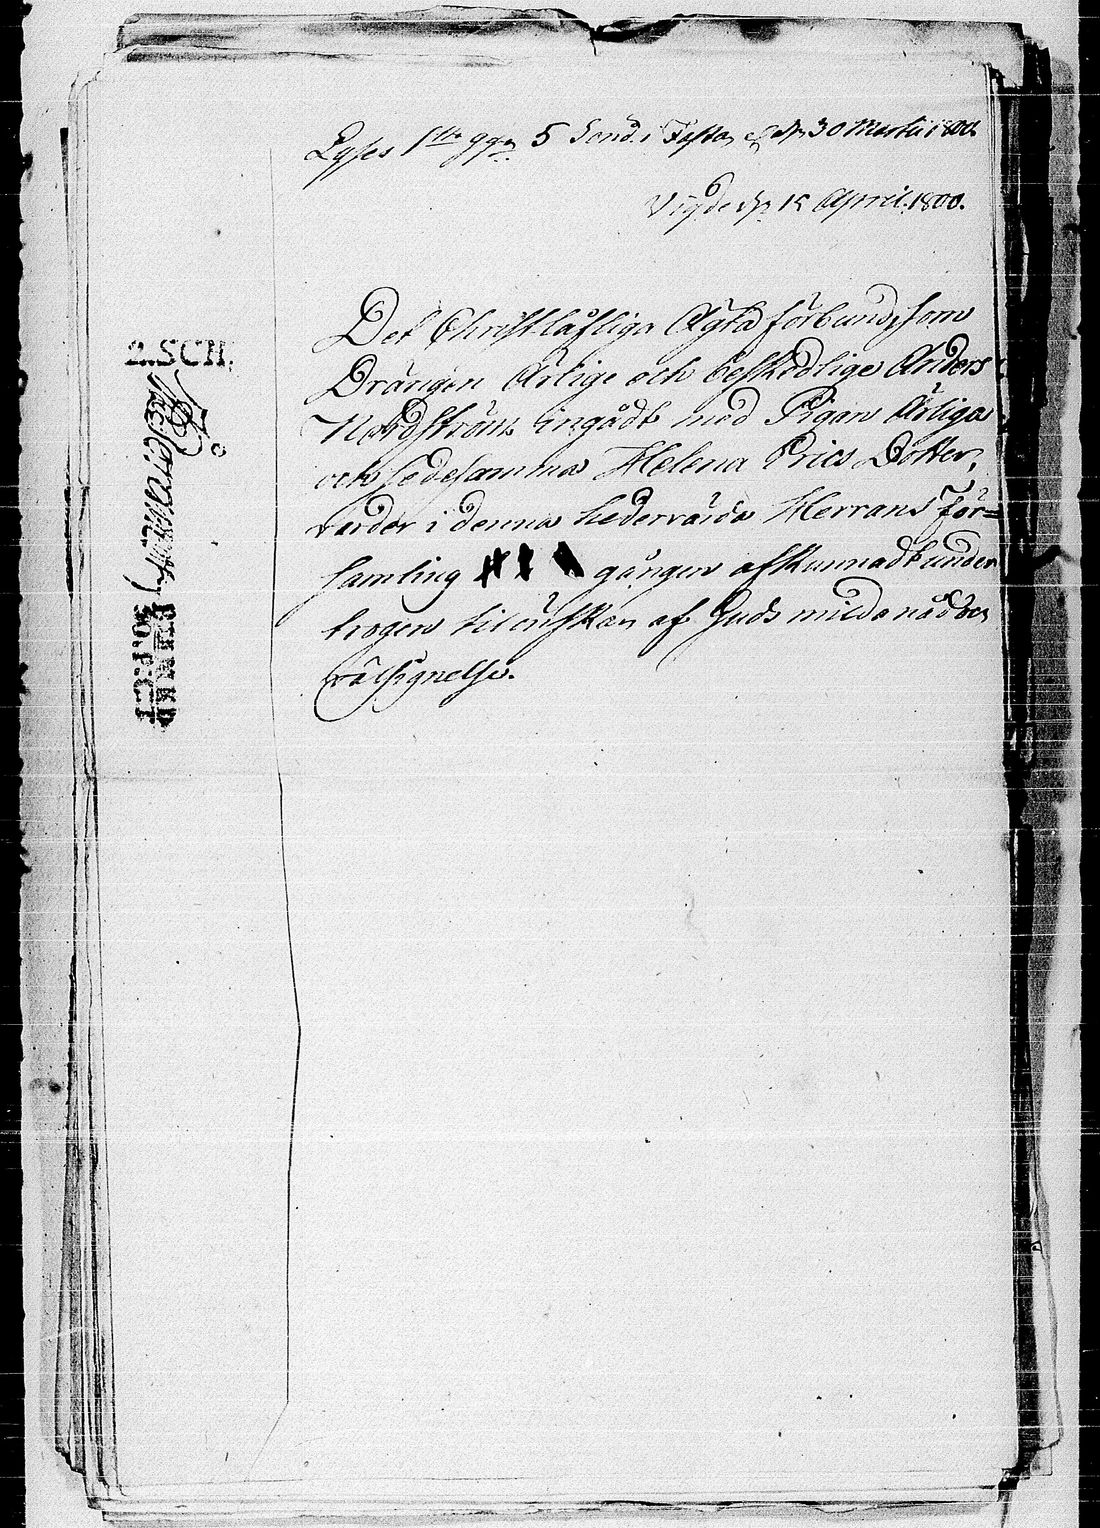 Lyses 1sta ggn 5 Sönd. i Fasta, el. dn 30 Martii 1800.
Vigde dn 15 April. 1800.
Det Christlåfliga Ägta förbund, som
Drängen Ärlige och beskedlige Anders
Nordström ingådt med Pigan Ärliga
och sedesamma Helena Erics Dotter,
varder i denna hedervärda Herrans För=
samling gången afkunnadt under
trogen tilönskan af Guds milda nåd och
välsignelse.
2. SCH.
No